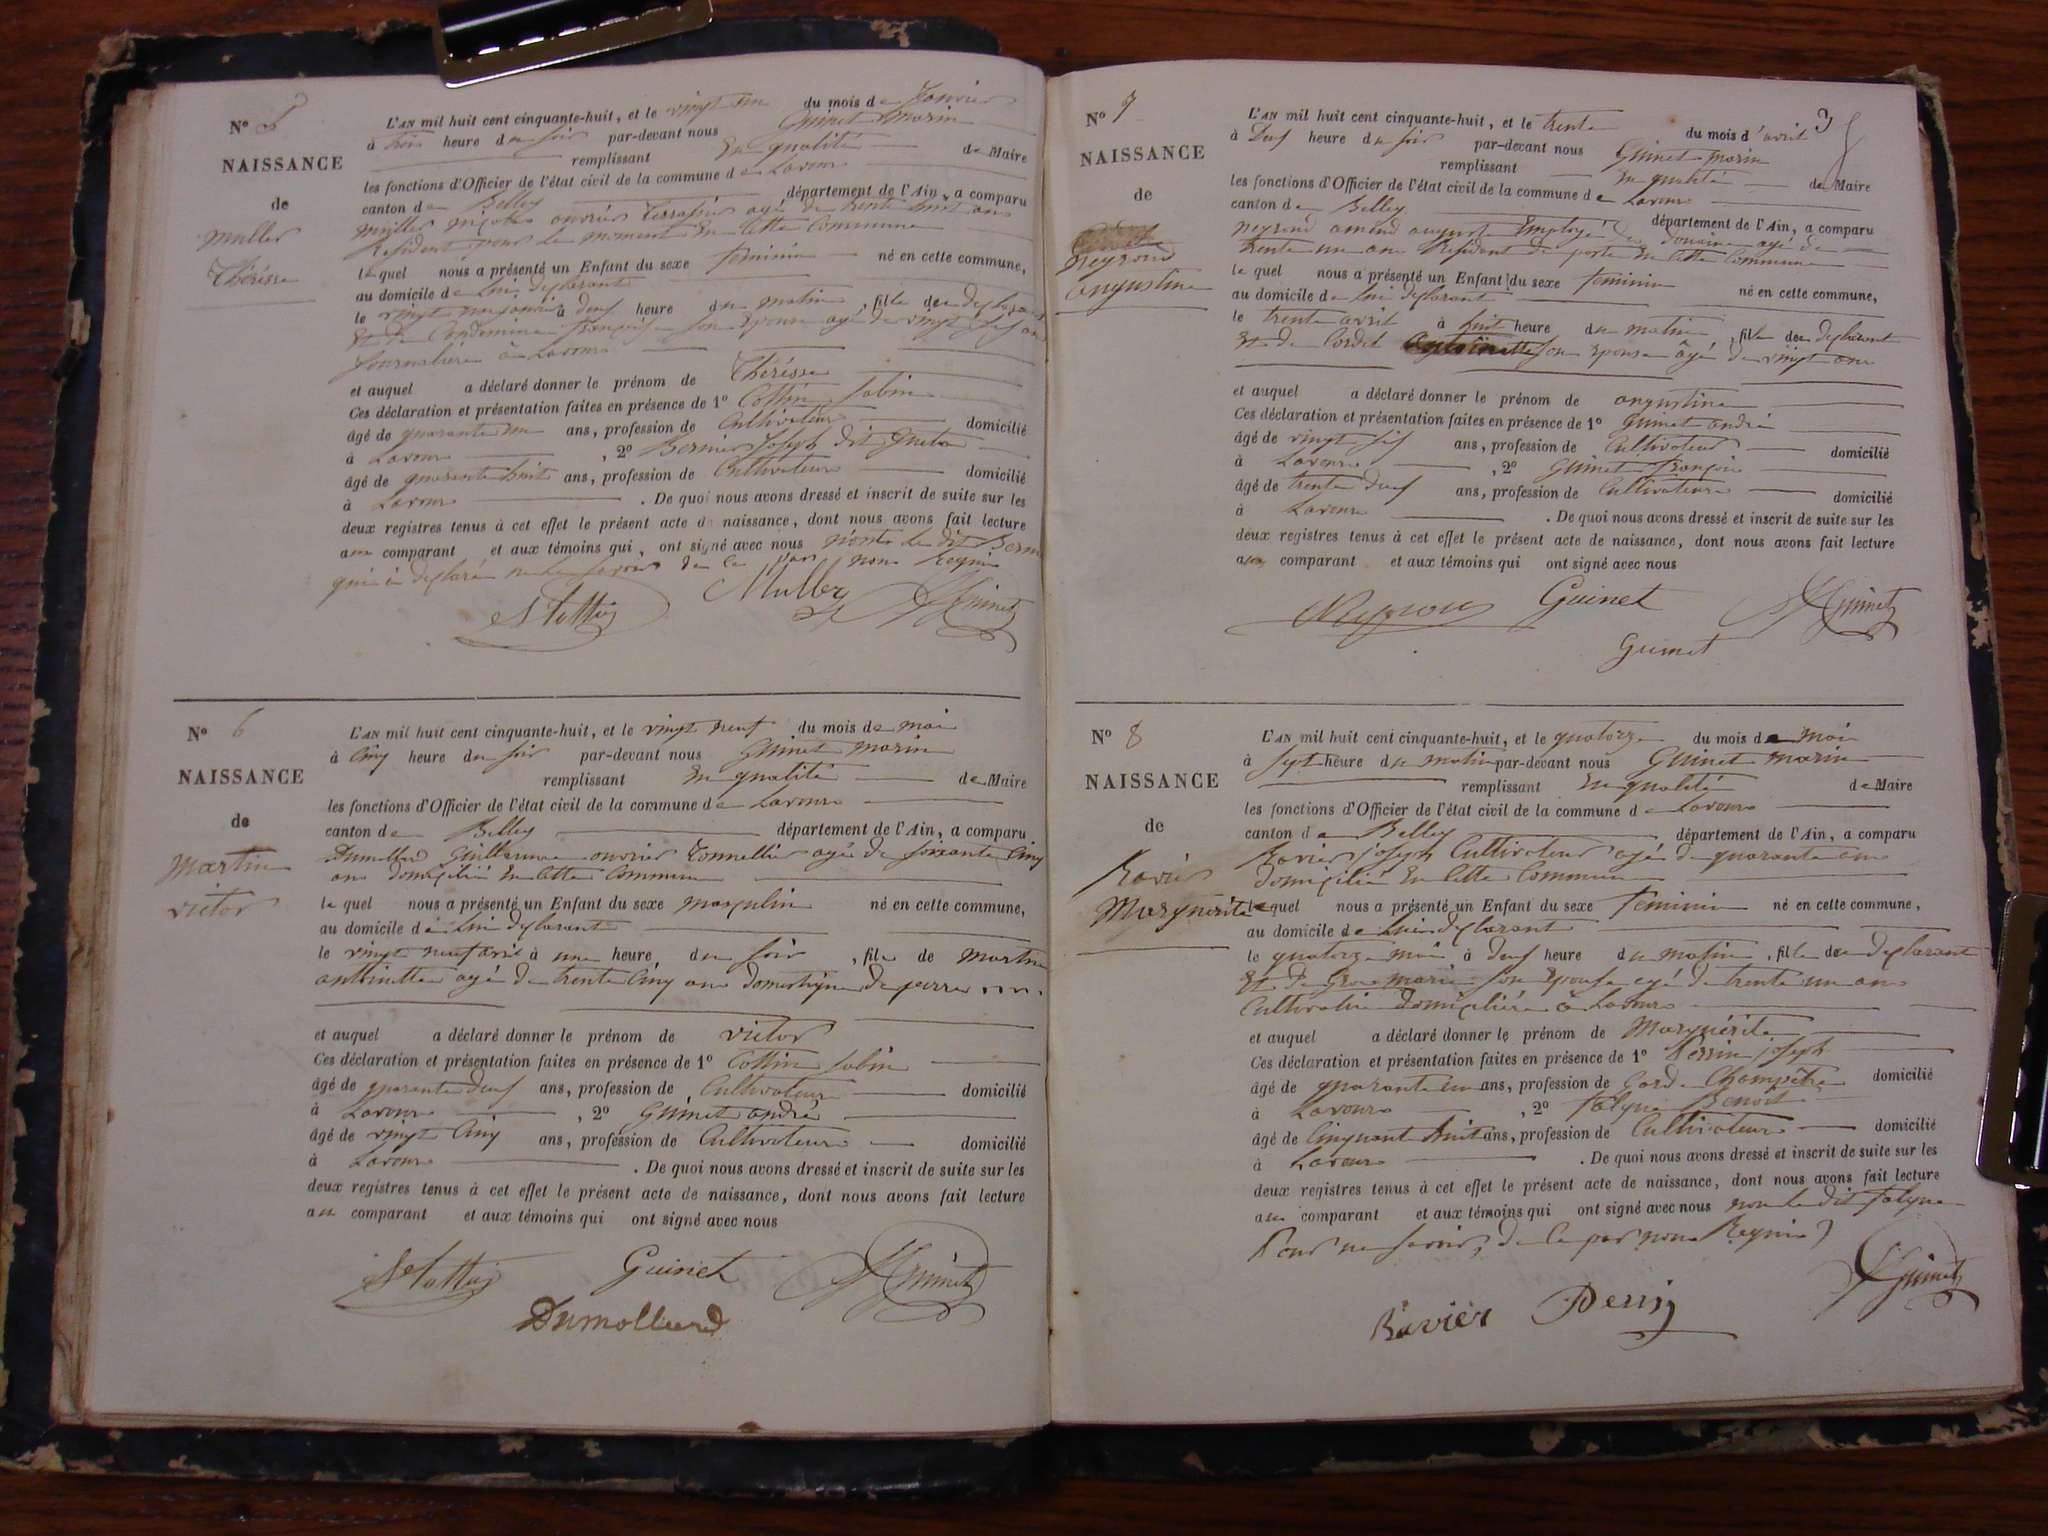 N° 5
NAISSANCE
de
Muller
Thérésse
L'AN mil huit cent cinquante-huit, et le vingt un du mois de Janvier
à trois heure du soir par-devant nous Guinet Marin
remplissant En qualité de Maire
les fonctions d'Officier de l'état civil de la commune de Lavour
canton de Belley département de l'Ain, a comparu
Muller nicolas ouvrier Terrassier agé de trente huit ans
Résident pour le moment En Cette Commune
lequel nous a présenté un Enfant du sexe feminin né en cette commune,
au domicile de lui déclarant
le vingt un janvier à deux heure du matin, fille de déclarant
Et de Condemine françoise son Epouse agé de vingt
Journalière à Lavour
et auquel a déclaré donner le prénom de Thérésse
Ces déclaration et présentation faites en présence de 1° Cottin Sabin
âgé de quarante un ans, profession de Cultivateur domicilié
à Lavour, 2° Bernier Joseph dit
âgé de quarante huit ans, profession de Cultivateur domicilié
à Lavour. De quoi nous avons dressé et inscrit de suite sur les
deux registres tenus à cet effet le présent acte de naissance, dont nous avons fait lecture
au comparant et aux témoins qui, ont signé avec nous le dit
qui à déclaré ne le savoir de ce par nous Requis
Stottin Muller Guinet
N° 6
NAISSANCE
de
Martin
victor
L'AN mil huit cent cinquante-huit, et le vingt neuf du mois de mai
à Cinq heure du soir par-devant nous Guinet Marin
remplissant En qualité de Maire
les fonctions d'Officier de l'état civil de la commune de Lavour
canton de Belley département de l'Ain, a comparu
Dumollard Guillaume ouvrier Tonnellier agé de soixante Cinq
ans domicilié En Cette Commune
lequel nous a présenté un Enfant du sexe masculin né en cette commune,
au domicile de lui déclarant
le vingt neuf à une heure du soir, fils de Martin
antoinette agé de trente Cinq ans domestique
et auquel a déclaré donner le prénom de victor
Ces déclaration et présentation faites en présence de 1° Cottin Sabin
âgé de quarante deux ans, profession de Cultivateur domicilié
à Lavour, 2° Guinet andré
âgé de vingt Cinq ans, profession de Cultivateur domicilié
à Lavour. De quoi nous avons dressé et inscrit de suite sur les
deux registres tenus à cet effet le présent acte de naissance, dont nous avons fait lecture
au comparant et aux témoins qui ont signé avec nous
Stottin Guinet Guinet
Dumollard
3
N° 7
NAISSANCE
de
neyroud
augustine
L'AN mil huit cent cinquante-huit, et le trente du mois d'avril
à Deux heure du soir par-devant nous Guinet Marin
remplissant En qualité de Maire
les fonctions d'Officier de l'état civil de la commune de Lavour
canton de Belley département de l'Ain, a comparu
neyroud amend auguste Employé des douane agé de
trente un ans Résident de poste En Cette Commune
lequel nous a présenté un Enfant du sexe feminin né en cette commune,
au domicile de lui déclarant
le trente avril à huit heure du matin, fille de déclarant
Et de Cordet antoinette son Epouse âgé de vingt ans
et auquel a déclaré donner le prénom de augustine
Ces déclaration et présentation faites en présence de 1° Guinet andré
âgé de vingt six ans, profession de Cultivateur domicilié
à Lavour, 2° Guinet françois
âgé de trente deux ans, profession de Cultivateur domicilié
à Lavour. De quoi nous avons dressé et inscrit de suite sur les
deux registres tenus à cet effet le présent acte de naissance, dont nous avons fait lecture
au comparant et aux témoins qui ont signé avec nous
Neyrou Guinet Guinet
Guinet
N° 8
NAISSANCE
de
Ravier
Marguérite
L'AN mil huit cent cinquante-huit, et le quatorze du mois de mai
à sept heure du matin par-devant nous Guinet Marin
remplissant En qualité de Maire
les fonctions d'Officier de l'état civil de la commune de Lavour
canton de Belley département de l'Ain, a comparu
Ravier joseph Cultivateur agé de quarante ans
domicilié En Cette Commune
lequel nous a présenté un Enfant du sexe feminin né en cette commune,
au domicile de lui déclarant
le quatorze mai à deux heure du matin, fille de déclarant
Et de Gros marie son Epouse agé de trente un ans
Cultivatrice domiciliée à Lavour
et auquel a déclaré donner le prénom de Marguérite
Ces déclaration et présentation faites en présence de 1° Perrin joseph
âgé de quarante un ans, profession de Garde Champêtre domicilié
à Lavour, 2° Falyne Benoit
âgé de Cinquant huit ans, profession de Cultivateur domicilié
à Lavour. De quoi nous avons dressé et inscrit de suite sur les
deux registres tenus à cet effet le présent acte de naissance, dont nous avons fait lecture
au comparant et aux témoins qui ont signé avec nous non le dit falyne
Pour ne savoir, de ce par nous Requis
Ravier Perrin Guinet